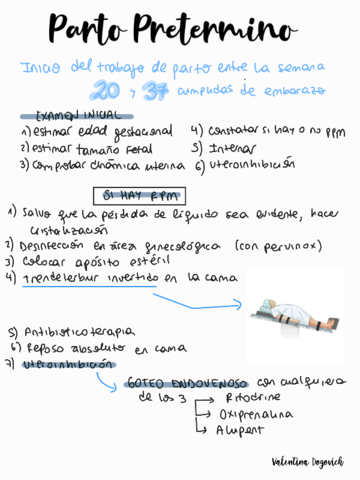 Parto Pretermino
Inicio del trabajo de parto entre la semana
20 y 37 cumplidas de embarazo
EXAMEN INICIAL
1) estimar edad gestacional
2) estimar tamaño fetal
3) comprobar dinámica uterina
4) constatar si hay o no RPM
5) Internar
6) Uteroinhibición
SI HAY RPM
1) Salvo que la pérdida de líquido sea evidente, hacer
cristalización
2) Desinfección en área ginecológica (con pervinox)
3) Colocar apósito estéril
4) trendelerbur invertido en la cama
5) Antibioticoterapia
6) Reposo absoluto en cama
7) Uteroinhibición
GOTEO ENDOVENOSO con cualquiera
de los 3
Ritodrine
Oxiprenalina
Alupent
Valentina Dogovich